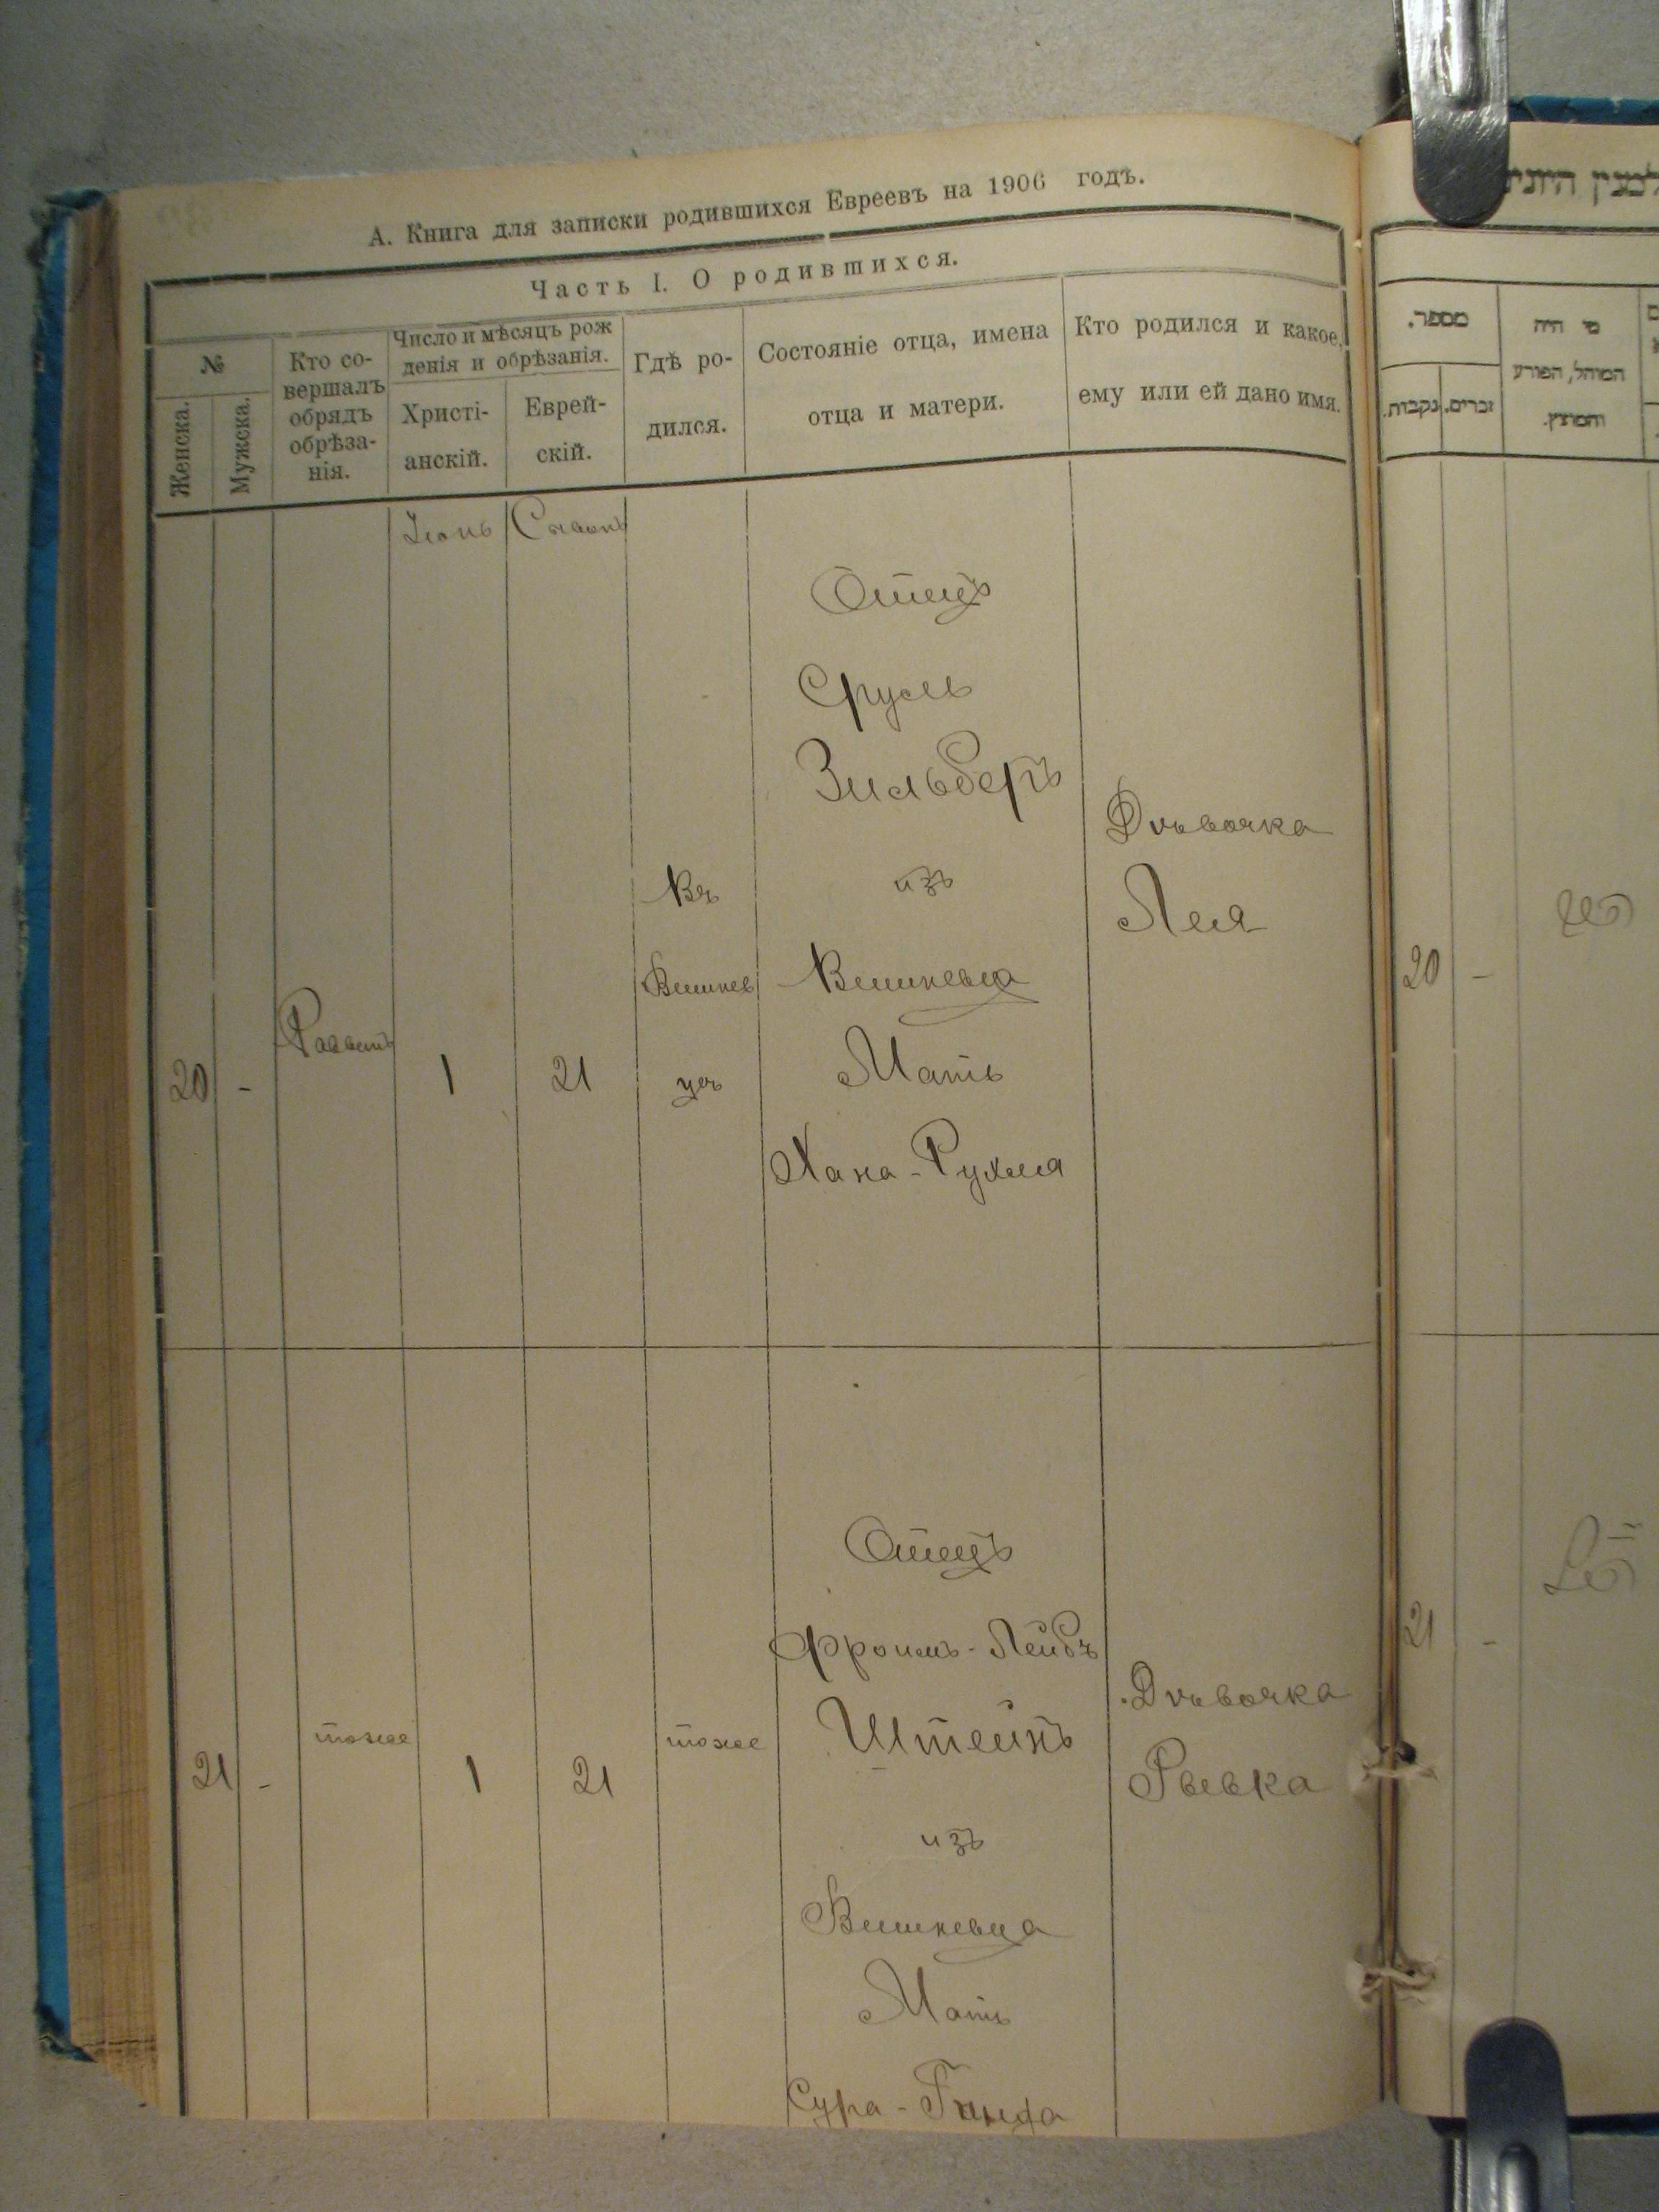 А. Книга для записки родившихся Евреевъ на 1906 годъ.
Часть I. О родившихся.
№
Женска.
Мужска.
Кто со-
вершалъ
обрядъ
обрѣза-
нія.
Число и мѣсяцъ рож
денія и обрѣзанія.
Христі-
анскій.
Еврей-
скій.
Гдѣ ро-
дился.
Состояніе отца, имена
отца и матери.
Кто родился и какое,
ему или ей дано имя.
Сиванъ
20
-
1
21
Въ
Вишнев
цѣ
Отецъ
Сруль
Зильберъ
изъ
Вишневца
Мать
Хана-Рухля
Дѣвочка
Лея
21
-
тоже
1
21
тоже
Отецъ
Фроимъ-Лейбъ
Штейнъ
изъ
Вишневца
Мать
Сура-
Дѣвочка
Рывка
מספר.
נקבות.
זכרים.
מי היה
המוהל, הפורע
והמוצץ.
20
-
21
-